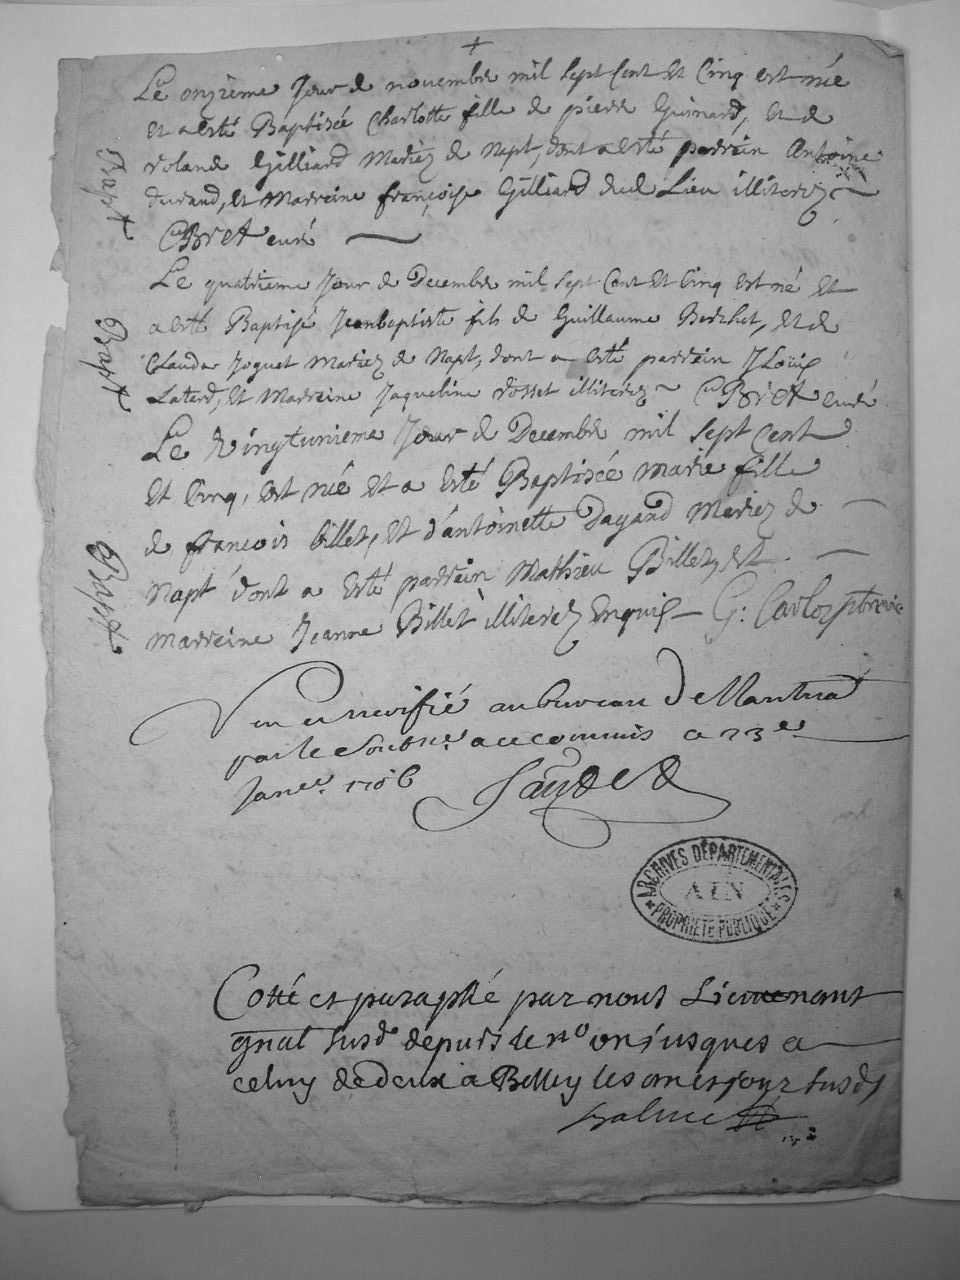 +
Le onzieme Jour de novembre mil sept Cent Et Cinq est née
Et a esté Baptisée Charlotte fille de pierre Guinard, Et de
rolande Gilliard Mariez de Napt, dont a esté parrein Antoine
durand, Et Marreine françoise Gilliard dud Lieu illiterez
Bapt
C Bret curé
Le quatrieme Jour de Decembre mil sept Cent Et Cinq est né Et
a esté Baptisé Jeanbaptiste fils de Guillaume Berchet, Et de
Bapt
Clauda Joguet Mariez de Napt, dont a esté parrein Loüis
Latard, Et Marreine Jaqueline rosset illiterez C Bret curé
Le Vingtunieme Jour de Decembre mil sept Cent
Et Cinq, est née Et a esté Baptisée Marie fille
de francois billet, Et d'antoinette Dagand Mariez de
Bapt
Napt dont a esté parrein Matthieu Billet, Et
marreine Jeanne Billet illiterez Enquis G: Carloz
Veu et verifié au bureau De Nantua
par le Soubnẽ a ce commis ce 23e
Janer. 1706
Cotté et paraphé par nous Lieutenant
gnal susd depuis le no un jusques a
celuy de deux a Belley les an et jour susds
ARCHIVES DÉPARTEMENTALES
AIN
PROPRIÉTÉ PUBLIQUE